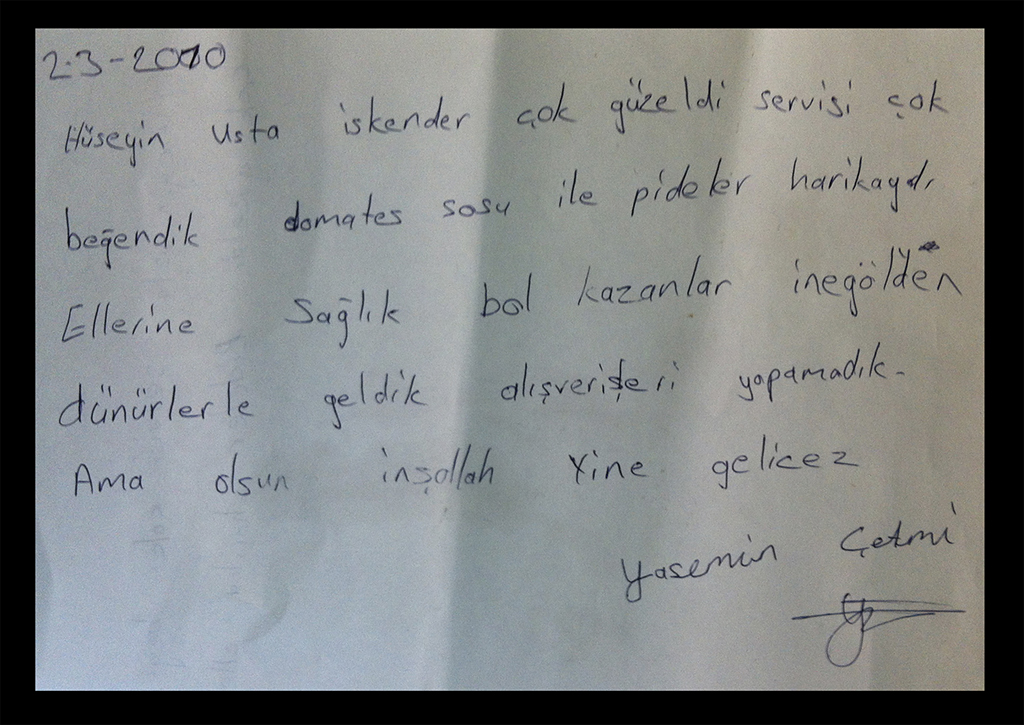 2.3-2010
Hüseyin Usta iskender çok güzeldi servisi çok
beğendik domates sosu ile pideler harikaydı
Ellerine Sağlık bol kazanlar inegöl'den
dünürlerle geldik alışverişleri yapamadık.
Ama olsun inşallah Yine gelicez
Yasemin Çetmi